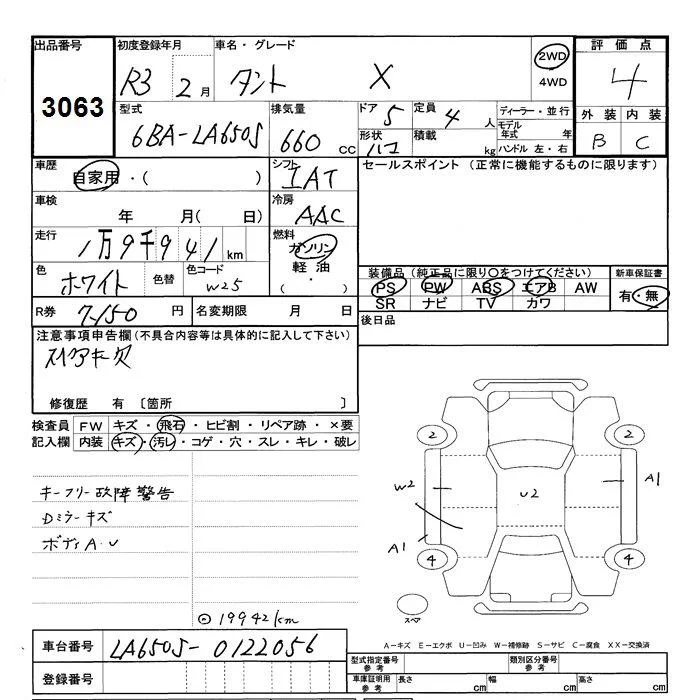 出品番号 初度登録年月 車名・グレード 評価点
3063 R3 2月 タント X 2WD 4WD 4
型式 排気量 ドア 5 定員 4人 ディーラー・並行 外装 内装
6BA-LA650S 660cc 形状 ハコ 積載 kg モデル年式 年 ハンドル 左・右 B C
車歴 自家用・( ) シフト IAT セールスポイント (正常に機能するものに限ります)
車検 年 月( 日) 冷房 AAC
走行 1万9千941km 燃料 ガソリン
色 ホワイト 色替 色コード W25 軽油 ( ・ ) 装備品 (純正品に限り〇をつけてください) 新車保証書
PS PW ABS エアB AW 有・無
SR ナビ TV カワ
R券 7,150円 名変期限 月 日 後日品
注意事項申告欄(不具合内容等は具体的に記入して下さい)
スペアキー欠
修復歴 有 〔箇所 〕
検査員 FW キズ・飛石・ヒビ割・リペア跡・×要
記入欄 内装 キズ・汚レ・コゲ・穴・スレ・キレ・破レ
2 2
キーフリー故障警告 W2 U2 A1
Dミラーキズ
ボディA.U A1
4 4
19942km スペア
A-キズ E-エクボ U-凹み W-補修跡 S-サビ C-腐食 XX-交換済
車台番号 LA650S-0122056
型式指定番号 参考 類別区分番号 参考
登録番号 車庫証明用 参考 長さ cm 幅 cm 高さ cm